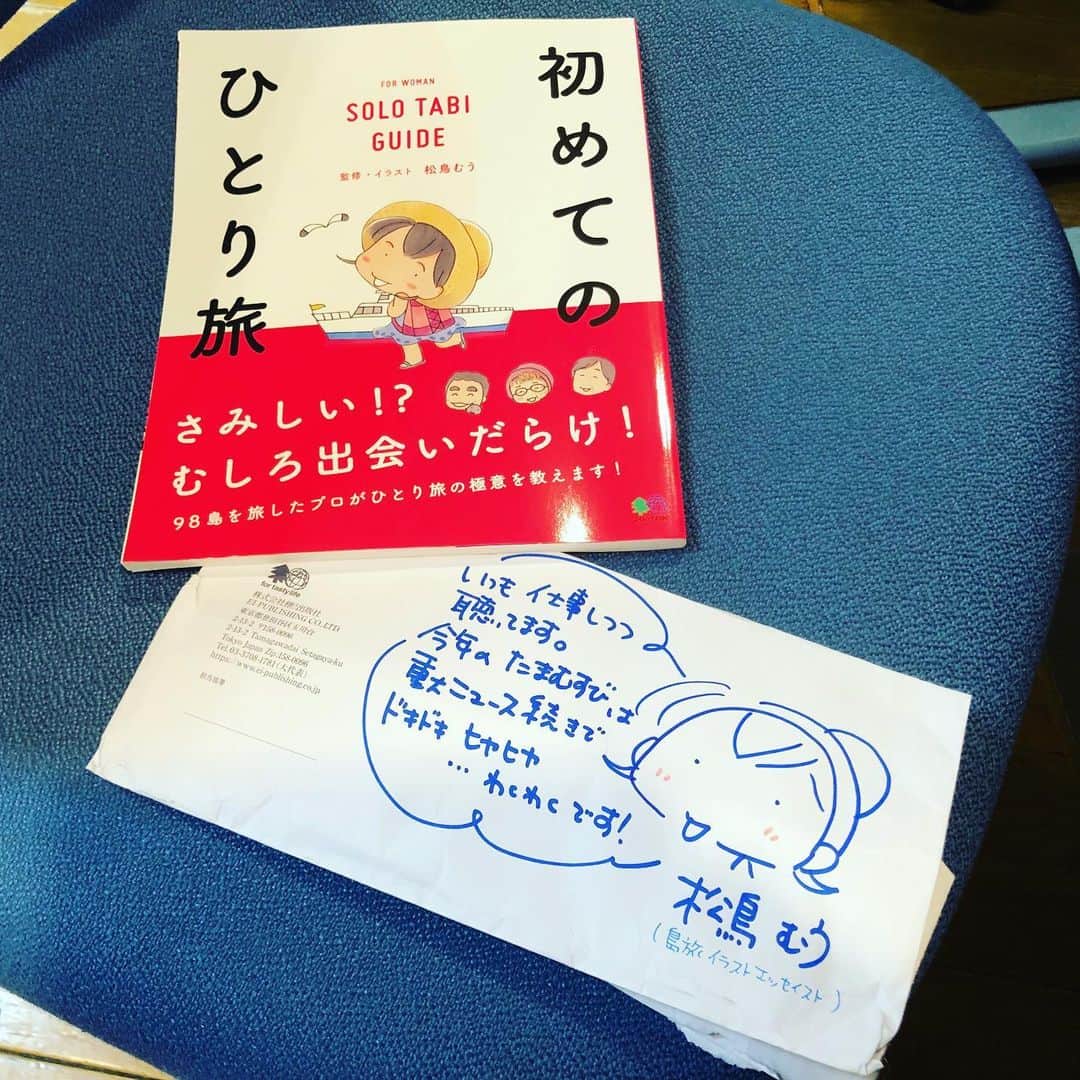 初めての
ひとり旅
FOR WOMAN
SOLO TABI
GUIDE
監修・イラスト 松鳥むう
さみしい!?
むしろ出会いだらけ!
98島を旅したプロがひとり旅の極意を教えます!
for tasty life
株式会社枻出版社
EI PUBLISHING CO.,LTD
東京都世田谷区玉川台
2-13-2 〒158-0096
2-13-2 Tamagawadai Setagaya-ku
Tokyo Japan Zip.158-0096
Tel.03-3708-5181(大代表)
https://www.ei-publishing.co.jp
いつも 仕事しつつ
聴いてます。
今年の たまむすび は
重大ニュース続きで
ドキドキ ヒヤヒヤ
… わくわく です!
松鳥 むう
(島旅イラストエッセイスト)